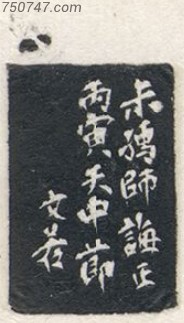 750747.com
未孺師誨正
丙寅天中節
文若